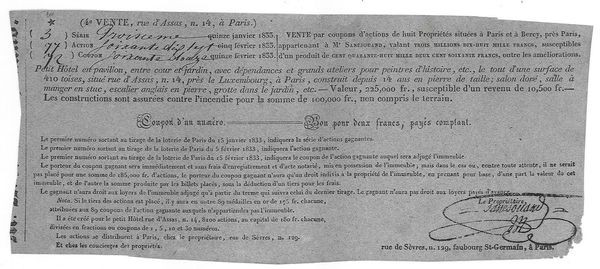 (4e VENTE, rue d'Assas, n. 14, à Paris.)
( 3 ) SÉRIE Troisième quinze janvier 1833. VENTE par coupons d'actions de huit Propriétés situées à Paris et à Bercy, près Paris,
( 77 ) ACTION Soixante dix sept cinq février 1833. appartenant à Mr SANEJOUAND, valant TROIS MILLIONS DIX-HUIT MILLE FRANCS, susceptibles
( ) COUPON Soixante quinze février 1833. d'un produit de CENT QUARANTE-HUIT MILLE DEUX CENT SOIXANTE FRANCS, outre les améliorations.
Petit Hôtel en pavillon, entre cour et jardin, avec dépendances et grands ateliers pour peintres d'histoire, etc., le tout d'une surface de
410 toises, situé rue d'Assas, n. 14, près le Luxembourg, à Paris, construit depuis 14 ans en pierre de taille; salon doré, salle à
manger en stuc, escalier anglais en pierre, grotte dans le jardin, etc. — Valeur, 225,000 fr., susceptible d'un revenu de 10,500 fr.—
Les constructions sont assurées contre l'incendie pour la somme de 100,000 fr., non compris le terrain.
Coupon d'un numéro. Bon pour deux francs, payés comptant.
Le premier numéro sortant au tirage de la loterie de Paris du 15 janvier 1833, indiquera la série d'actions gagnantes.
Le premier numéro sortant au tirage de la loterie de Paris du 5 février 1833, indiquera l'action gagnante.
Le premier numéro sortant au tirage de la loterie de Paris du 15 février 1833, indiquera le coupon de l'action gagnante auquel sera adjugé l'immeuble.
Le porteur du coupon gagnant sera qu'immédiatement et sans frais d'enregistrement et d'acte notarié, mis en possession de l'immeuble, mais dans le cas où, contre toute attente, il ne serait
pas placé pour une somme de 185,000 fr. d'actions, le porteur du coupon gagnant n'aura qu'un droit indivis à la propriété de l'immeuble, en prenant pour base, d'une part la valeur du cet
immeuble, et de l'autre la somme produite par les billets placés, sous la déduction d'un tiers pour les frais.
Le gagnant n'aura droit aux loyers de l'immeuble adjugé qu'à partir du terme qui suivra celui du dernier tirage. Le gagnant n'aura pas droit aux loyers payés d'avance.
Nota. Si le tiers des actions est placé, il y aura en outre 89 médailles en or de 195 fr. chacune,
attribuées aux 89 coupons de l'action gagnante auxquels n'appartiendra pas l'immeuble.
Il a été créé pour le petit Hôtel rue d'Assas, n. 14, 8100 actions, au capital de 180 fr. chacune,
divisées en fractions ou coupons de 1, 5, 10 et 30 numéros.
Les actions se distribuent à Paris, chez le propriétaire, rue de Sèvres, n. 129.
Et chez les concierges des propriétés.
Le Propriétaire
Sanejouand
rue de Sèvres, n. 129, faubourg St-Germain, à Paris.